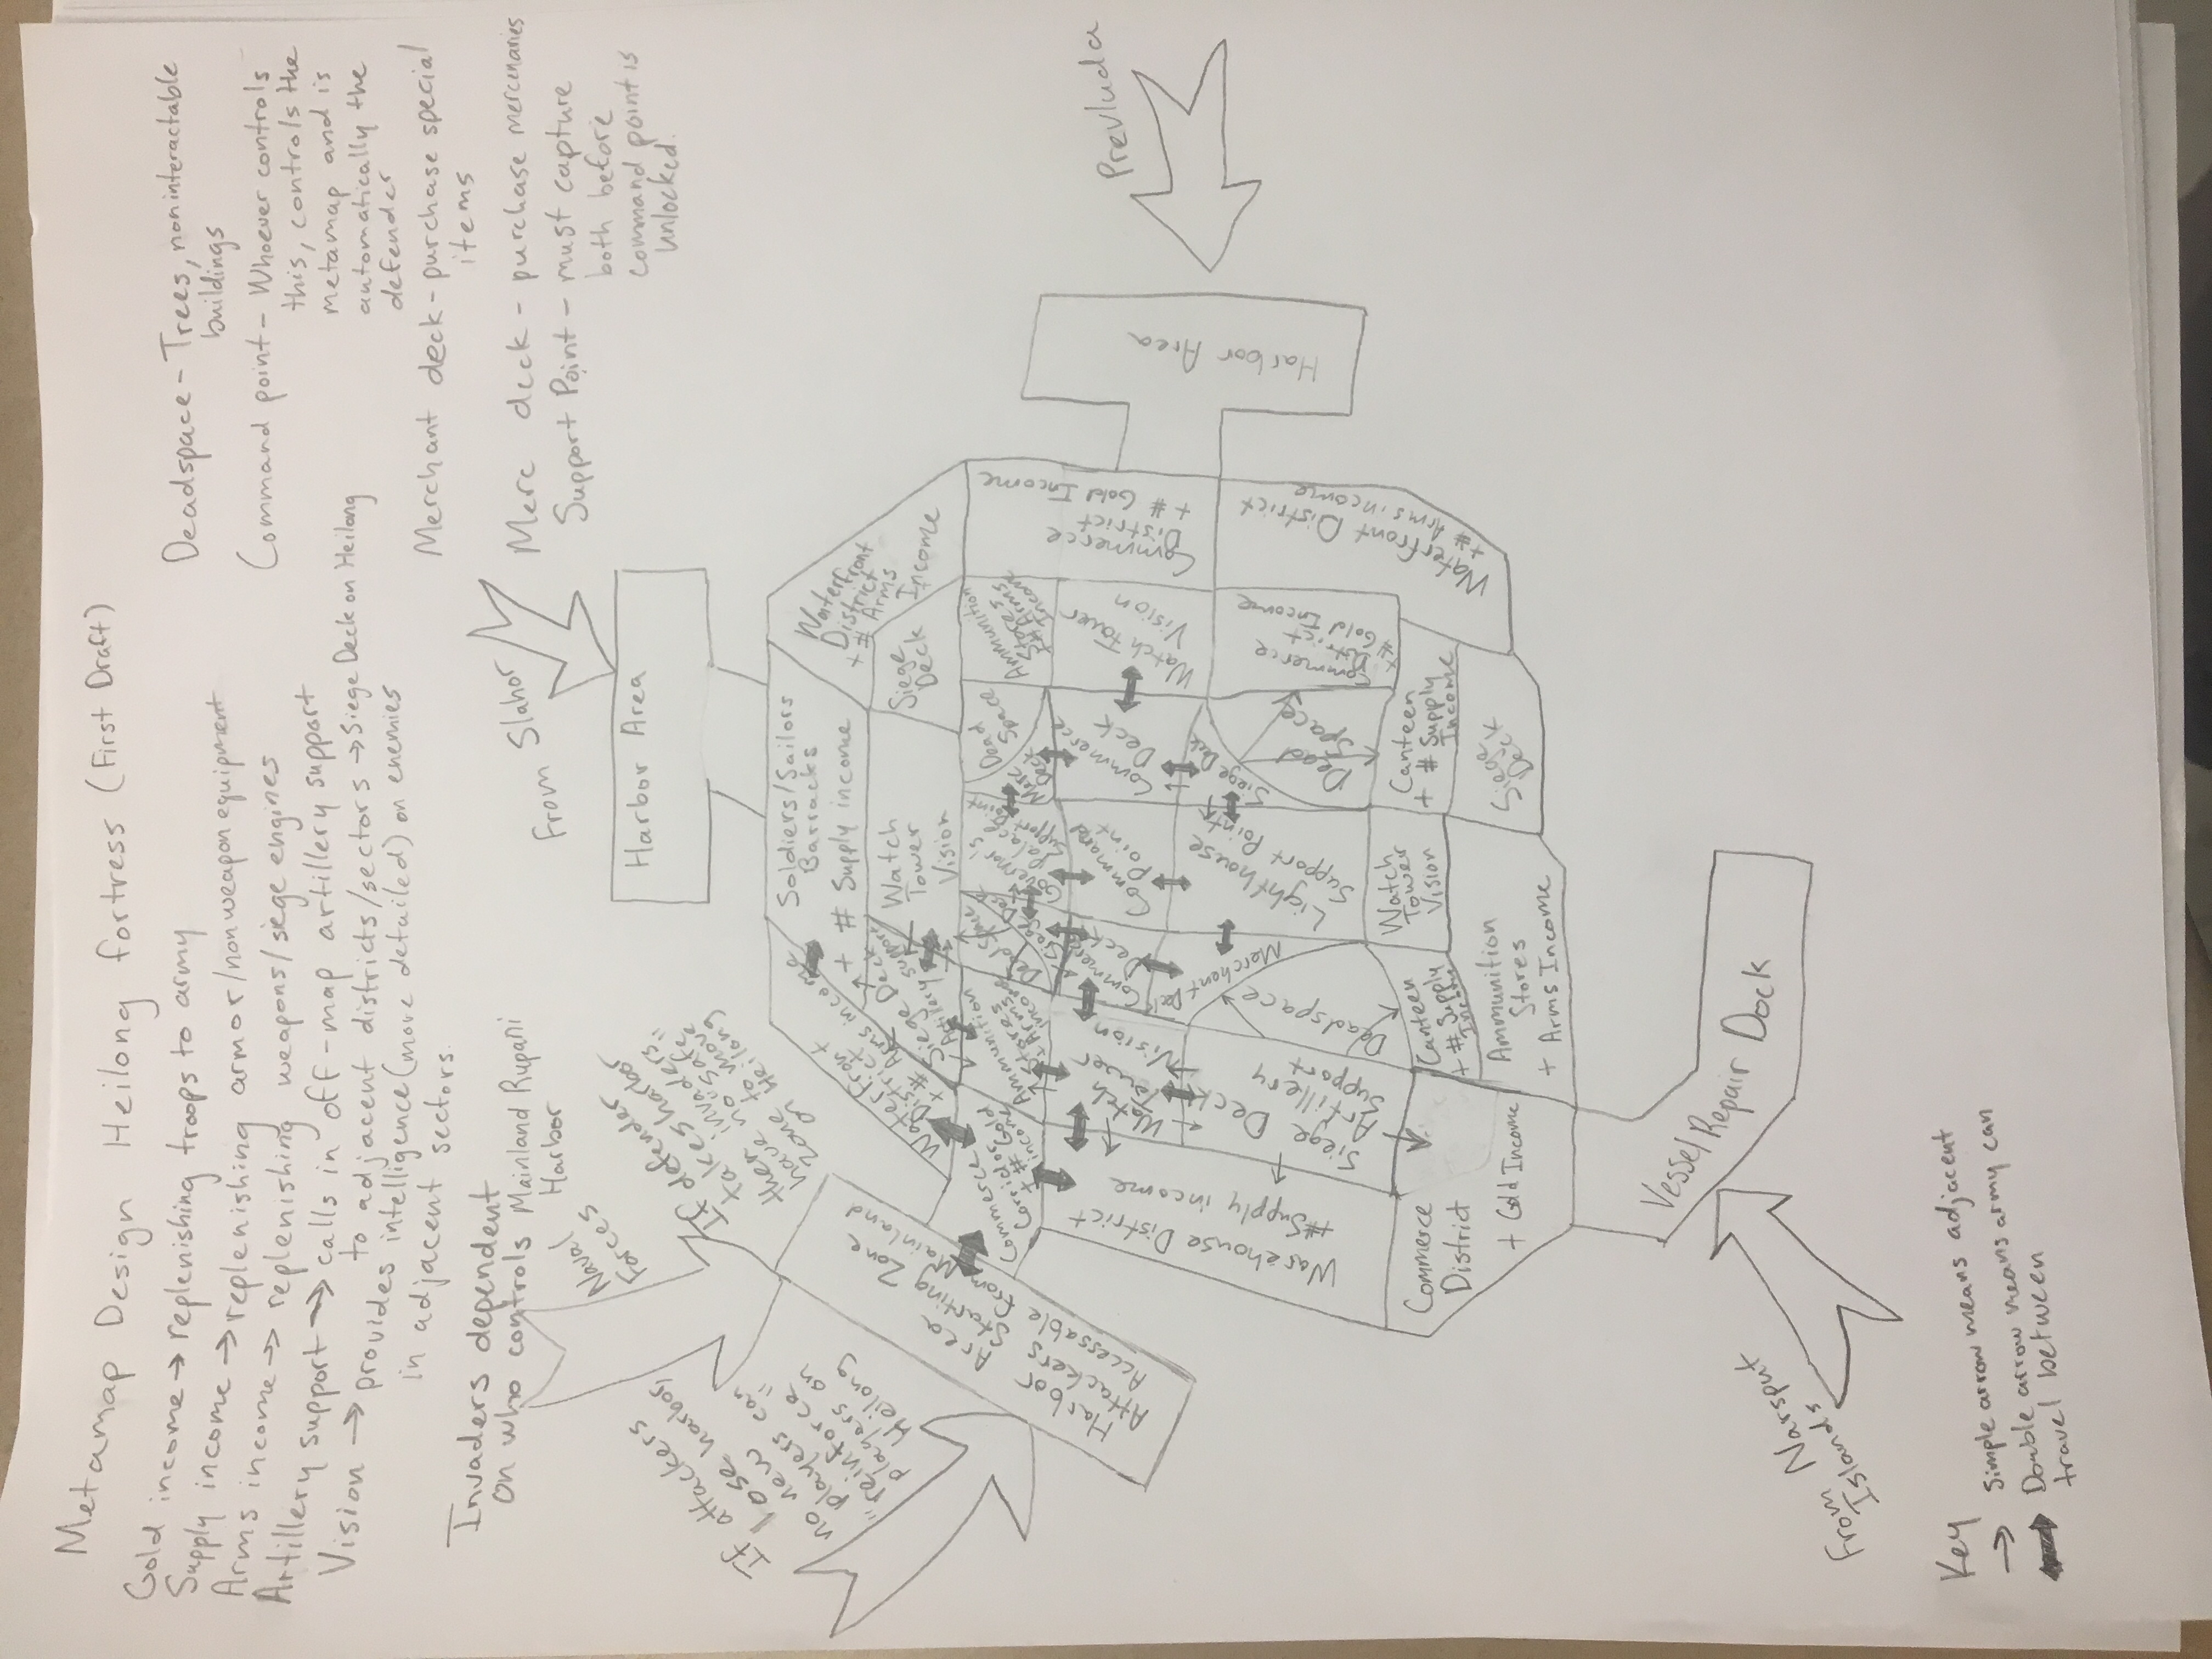 Metamap Design Heilong fortress (First Draft)
Gold income → replenishing troops to army
Supply income → replenishing armor/nonweapon equipment
Arms income → replenishing weapons/siege engines
Artillery support → calls in off-map artillery support
to adjacent districts/sectors → Siege Deck on Heilong
Vision → provides intelligence (more detailed) on enemies
in adjacent sectors.
Deadspace - Trees, noninteractable
buildings
Command point - Whoever controls
this, controls the
metamap and is
automatically the
defender
Merchant deck - purchase special
items
Merc deck - purchase mercenaries
Support Point - must capture
both before
command point is
unlocked.
Invaders dependent
on who controls Mainland Rupani
Harbor
Naval
Forces
From Slahor
Harbor Area
If attackers
lose harbor,
no new
players can
"reinforce"
players on
Heilong
If defender
takes harbor
then invaders
have no "safe"
zone to move
on Heilong
Harbor Area
Attackers Starting Zone
Accessable from Mainland
Soldiers/Sailors
Barracks
+ # Supply income
Waterfront
District
+ # Arms income
Waterfront
District
+ # Arms
Income
Siege Deck
Artillery support
Watch
Tower
Vision
Siege
Deck
Commerce
Corridor
+ # Gold
income
Ammunition
Stores
+ Arms
income
Dead Space
Siege Deck
Governor's
Palace
Support Point
Merc
Deck
Dead
Space
Ammunition
Stores
+ Arms
Income
Commerce
District
+ # Gold Income
Warehouse District
+ # Supply income
Watch
Tower
Vision
Commerce
Deck
Command
Point
Commerce
Deck
Watch Tower
Vision
Harbor Area
Prevluda
Siege Deck
Artillery
Support
Deadspace
Merchant Deck
Lighthouse
Support Point
Siege Deck
Dead
Space
Commerce
District
+ # Gold Income
Waterfront District
+ # Arms income
Commerce
District
+ Gold Income
Canteen
+ # Supply
Income
Watch
Tower
Vision
Canteen
+ # Supply
Income
Ammunition
Stores
+ Arms Income
Siege
Deck
Vessel Repair Dock
From Narsput
Islands
Key
→ Simple arrow means adjacent
Double arrow means army can
travel between